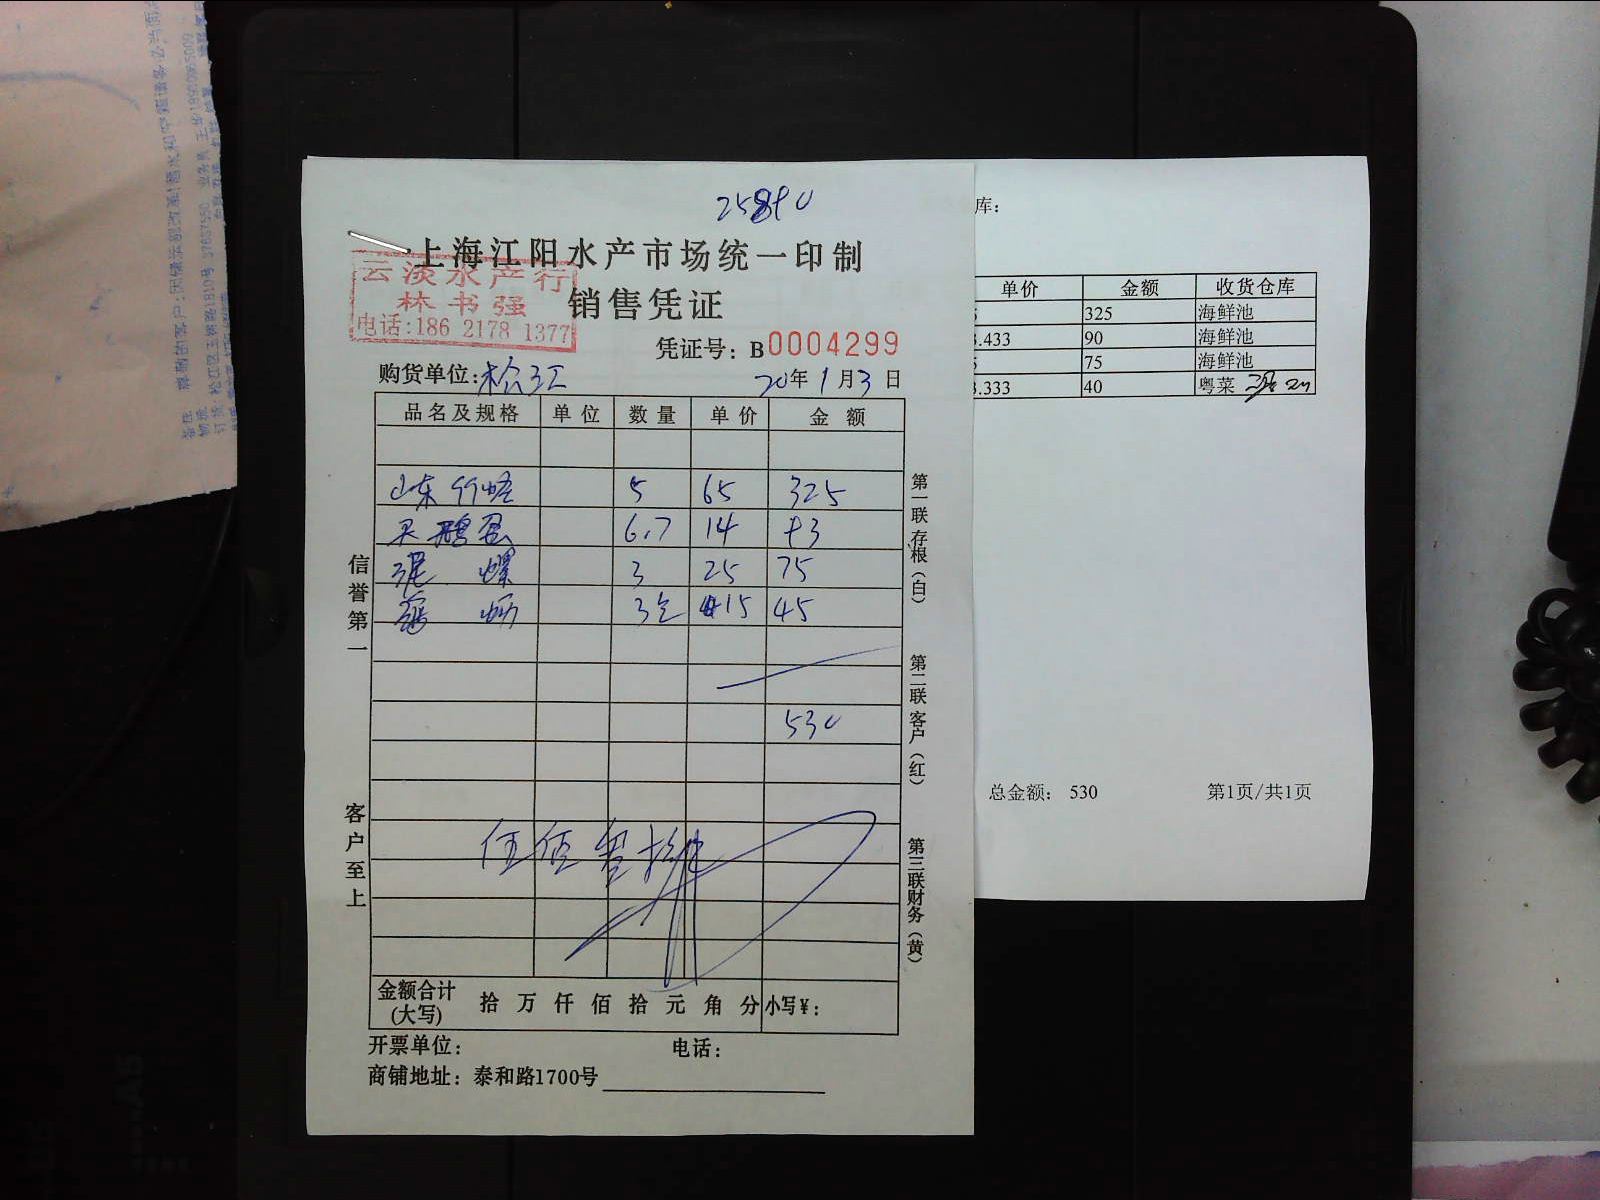 上海江阳水产市场统一印制
云淡水产行
林书强
电话:186 2178 1377
销售凭证
凭证号: B0004299
购货单位:松江
20年1月3日
品名及规格 单位 数量 单价 金额
山东竹蛏 5 65 325
天鹅蛋 6.7 14 93
泥螺 3 25 75
3 15 45
530
伍佰叁拾
金额合计(大写) 拾 万 仟 佰 拾 元 角 分 小写¥:
开票单位: 电话:
商铺地址: 泰和路1700号
信誉第一
客户至上
第一联存根(白)
第二联客户(红)
第三联财务(黄)
库:
单价 金额 收货仓库
325 海鲜池
.433 90 海鲜池
75 海鲜池
.333 40 粤菜
总金额: 530 第1页/共1页